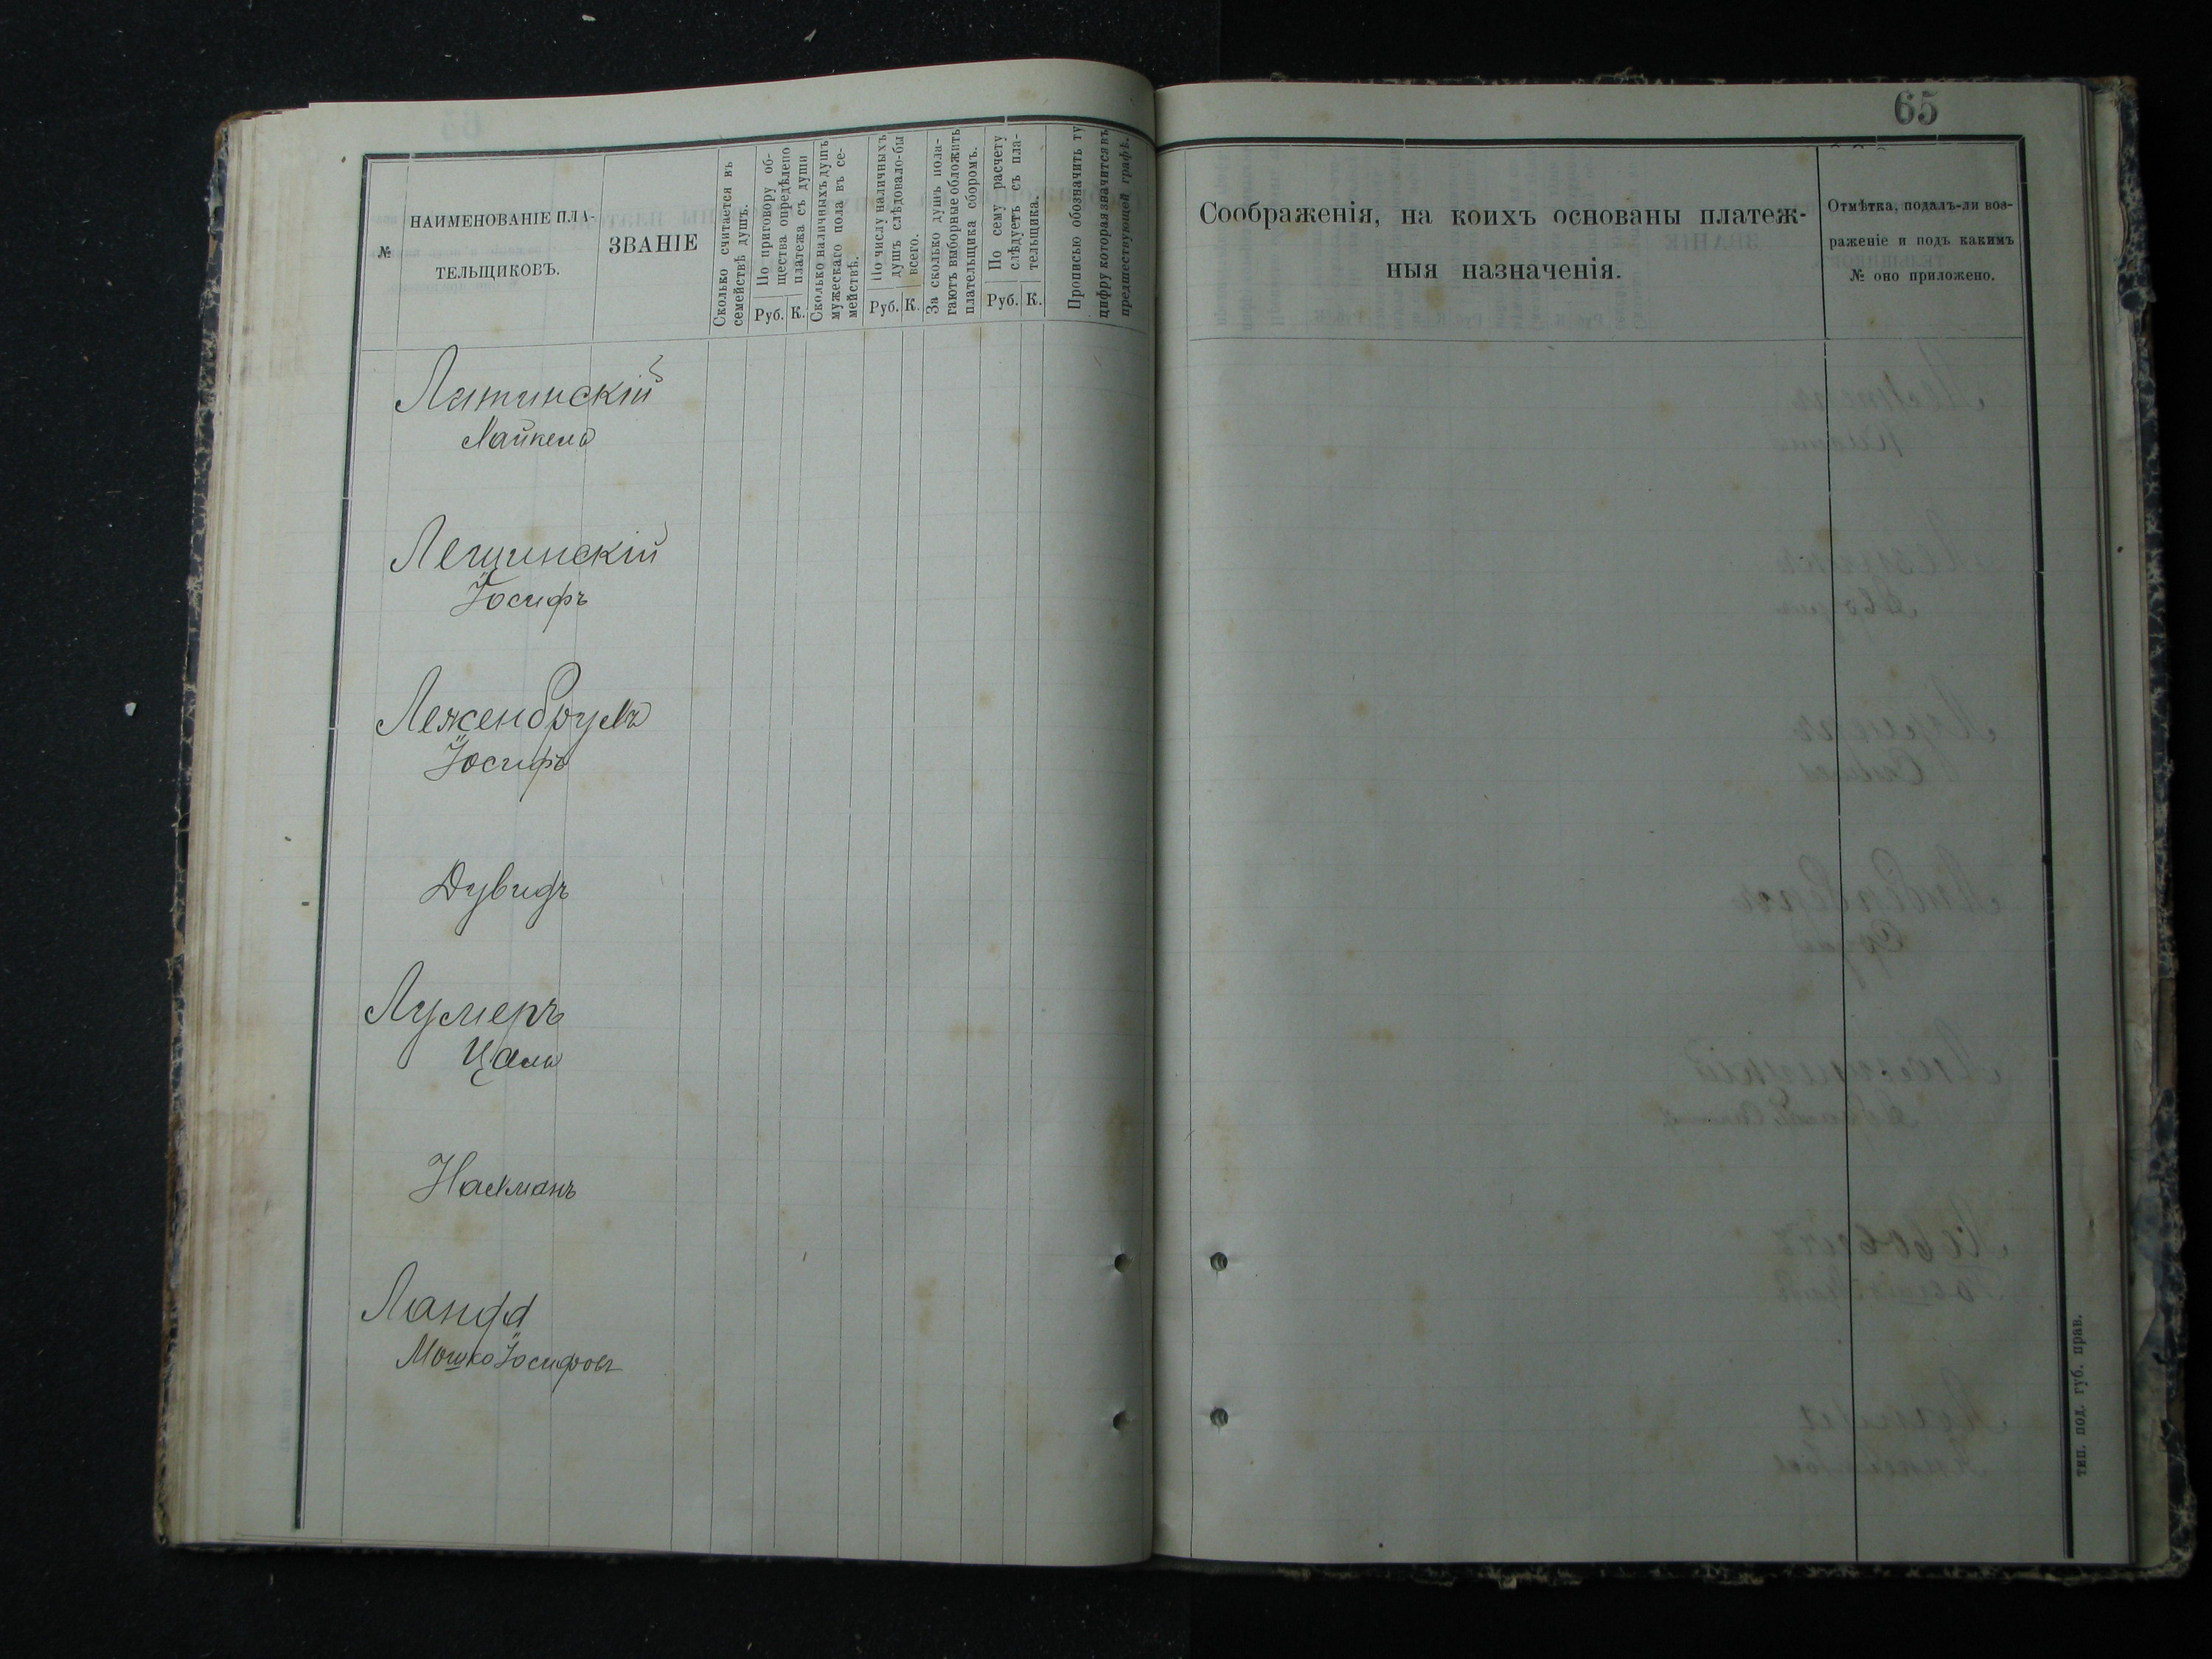 65
№
НАИМЕНОВАНІЕ ПЛА-
ТЕЛЬЩИКОВЪ.
ЗВАНІЕ
Сколько считается въ
семействѣ душъ.
По приговору об-
щества опредѣлено
платежа съ души
Руб. К.
Сколько наличныхъ душъ
мужескаго пола въ се-
мействѣ.
По числу наличныхъ
душъ слѣдовало-бы
всего.
Руб. К.
За сколько душъ пола-
гаютъ выборные обложить
плательщика сборомъ.
По сему расчету
слѣдуетъ съ пла-
тельщика.
Руб. К.
Прописью обозначить ту
цифру которая значится въ
предшествующей графѣ.
Соображенія, на коихъ основаны платеж-
ныя назначенія.
Отмѣтка, подалъ-ли воз-
раженіе и подъ какимъ
№ оно приложено.
Латинскій
Лещинскій
Іосифъ
Леженбрумъ
Іосифъ
Дувидъ
Лумеръ
Цаль
Нахманъ
Ланда
Мошко Іосифовъ
тип. под. губ. прав.